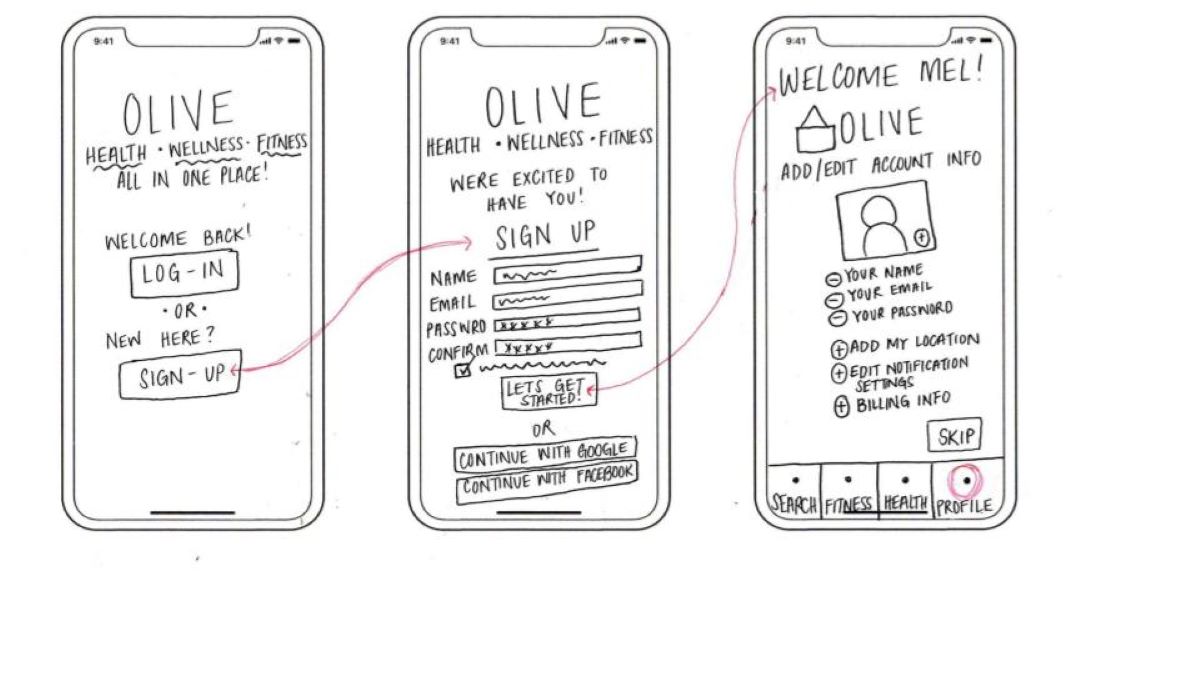 9:41
OLIVE
HEALTH · WELLNESS · FITNESS
ALL IN ONE PLACE!
WELCOME BACK!
LOG-IN
· OR ·
NEW HERE?
SIGN-UP
9:41
OLIVE
HEALTH · WELLNESS · FITNESS
WERE EXCITED TO
HAVE YOU!
SIGN UP
NAME
EMAIL
PASSWRD xxxxx
CONFIRM xxxxx
LETS GET
STARTED!
OR
CONTINUE WITH GOOGLE
CONTINUE WITH FACEBOOK
9:41
WELCOME MEL!
OLIVE
ADD/EDIT ACCOUNT INFO
YOUR NAME
YOUR EMAIL
YOUR PASSWORD
ADD MY LOCATION
EDIT NOTIFICATION
SETTINGS
BILLING INFO
SKIP
SEARCH FITNESS HEALTH PROFILE